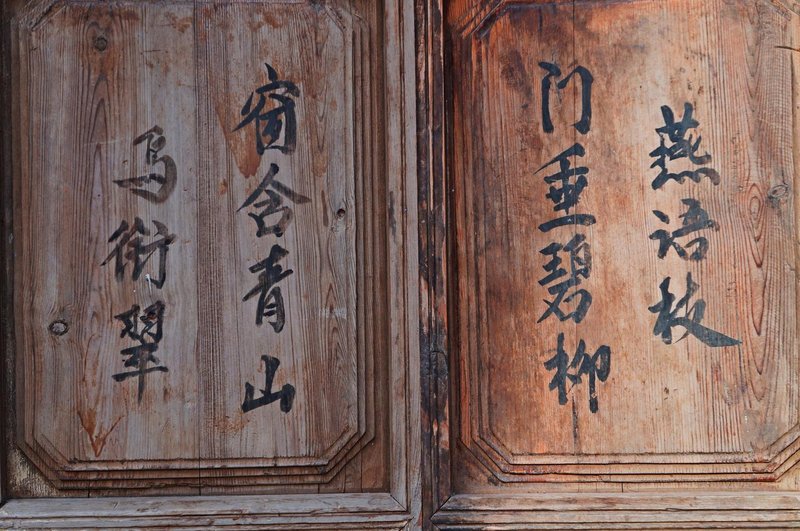 门垂碧柳
燕语枝
窗含青山
鸟衔翠